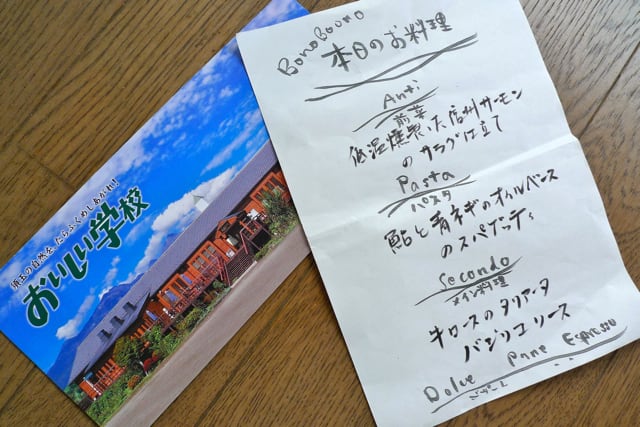 須玉の自然を、たらふくめしあがれ!
おいしい学校
BonoBoono
本日のお料理
Anti
前菜
低温燻製した信州サーモン
のサラダ仕立て
Pasta
パスタ
鮎と青ネギのオイルベース
のスパゲッティ
Secondo
メイン料理
牛ロースのタリアータ
バジリコソース
Dolce Pane Espresso
デザート